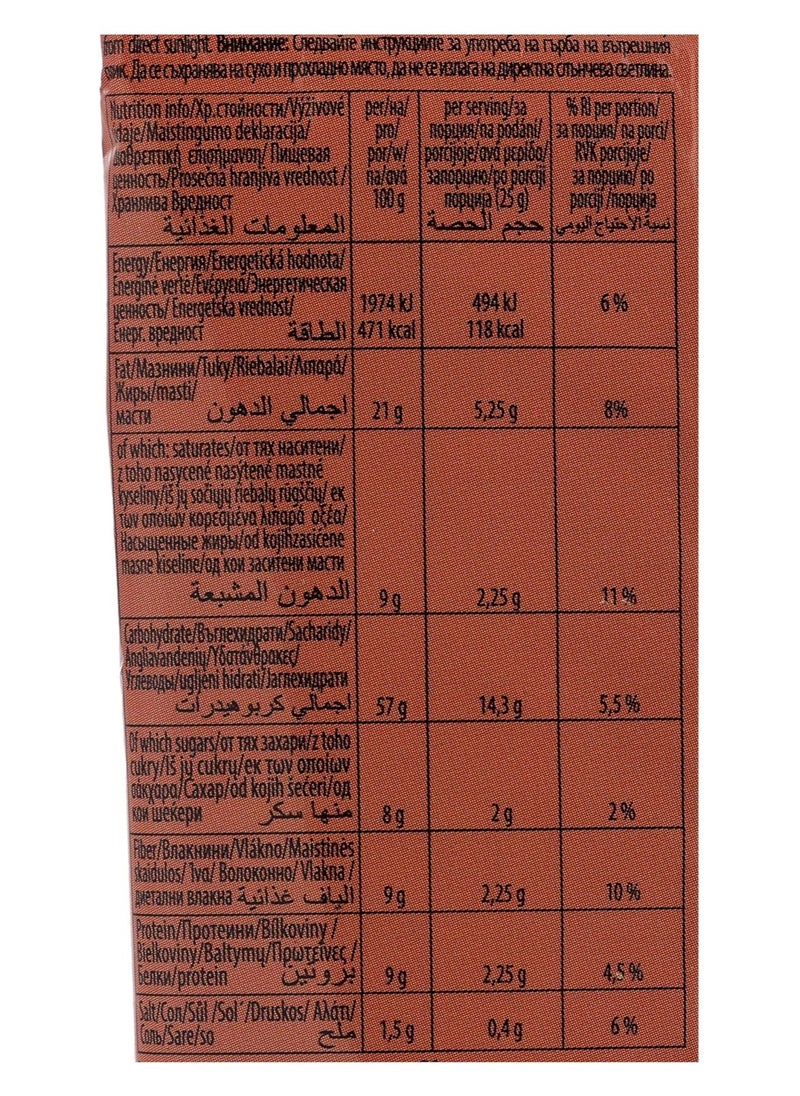 from direct sunlight. Внимание: Следвайте инструкциите за употреба на гърба на вътрешния
Да се съхранява на сухо и прохладно място, да не се излага на директна слънчева светлина.
Nutrition info/Хр.стойности/Výživové
údaje/Maistingumo deklaracija/
Διαθρεπτική επισήμανση/ Пищевая
ценность/Prosečna hranjiva vrednost /
Хранлива Вредност
المعلومات الغذائية
per/на/
pro/
por/w/
na/ανά
100 g
per serving/за
порция/na podání/
porcijoje/ανά μερίδα/
запорцию/po porciji
порција (25 g)
حجم الحصة
% RI per portion/
за порция/ na porci/
RVK porcijoje/
за порцию/ po
porciji /порција
نسبة الاحتياج اليومي
Energy/Енергия/Energetická hodnota/
Energinė vertė/Ενέργεια/Энергетическая
ценность/ Energetska vrednost/
Енерг. вредност الطاقة
1974 kJ
471 kcal
494 kJ
118 kcal
6 %
Fat/Мазнини/Tuky/Riebalai/Λιπαρά/
Жиры/masti/
масти اجمالي الدهون
21 g
5,25 g
8%
of which: saturates/от тях наситени/
z toho nasycené nasýtené mastné
kyseliny/iš jų sočiųjų riebalų rūgščių/ εκ
των οποίων κορεσμένα λιπαρά οξέα/
Насыщенные жиры/od kojihzasićene
masne kiseline/од кои заситени масти
الدهون المشبعة
9 g
2,25 g
11 %
Carbohydrate/Въглехидрати/Sacharidy/
Angliavandenių/Υδατάνθρακες/
Углеводы/ugljeni hidrati/Јаглехидрати
اجمالي كربوهيدرات
57 g
14,3 g
5,5 %
Of which sugars/от тях захари/z toho
cukry/Iš jų cukrų/εκ των οποίων
σάκχαρα/Сахар/od kojih šećeri/од
кои шеќери منها سكر
8 g
2 g
2 %
Fiber/Влакнини/Vlákno/Maistinės
skaidulos/ Ίνα/ Волоконно/ Vlakna /
диетални влакна الياف غذائية
9 g
2,25 g
10 %
Protein/Протеини/Bílkoviny /
Bielkoviny/Baltymų/Πρωτεΐνες /
белки/protein بروتين
9 g
2,25 g
4,5 %
Salt/Сол/Sůl /Sol´/Druskos/ Αλάτι/
Соль/Sare/so ملح
1,5 g
0,4 g
6 %